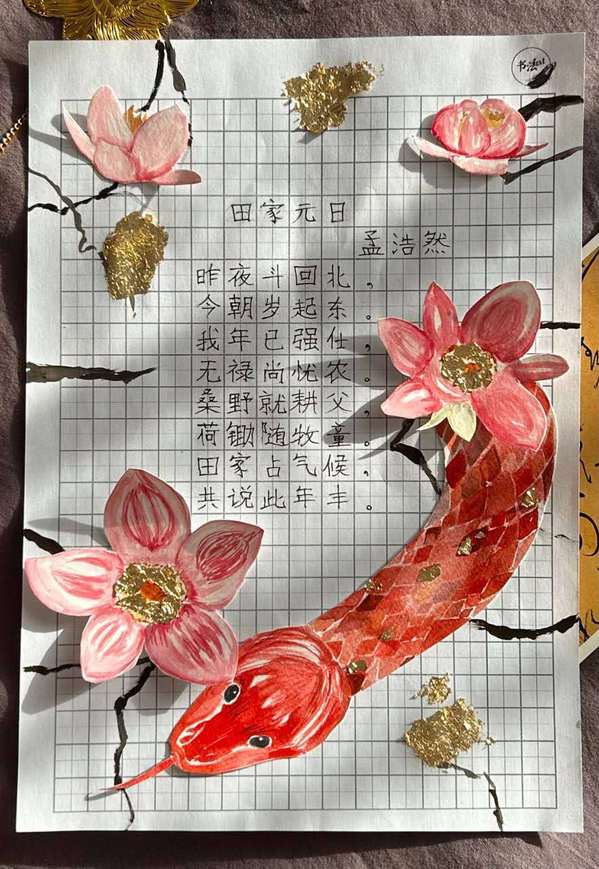 书法
田家元日
孟浩然
昨夜斗回北，
今朝岁起东。
我年已强仕，
无禄尚忧农。
桑野就耕父，
荷锄随牧童。
田家占气候，
共说此年丰。